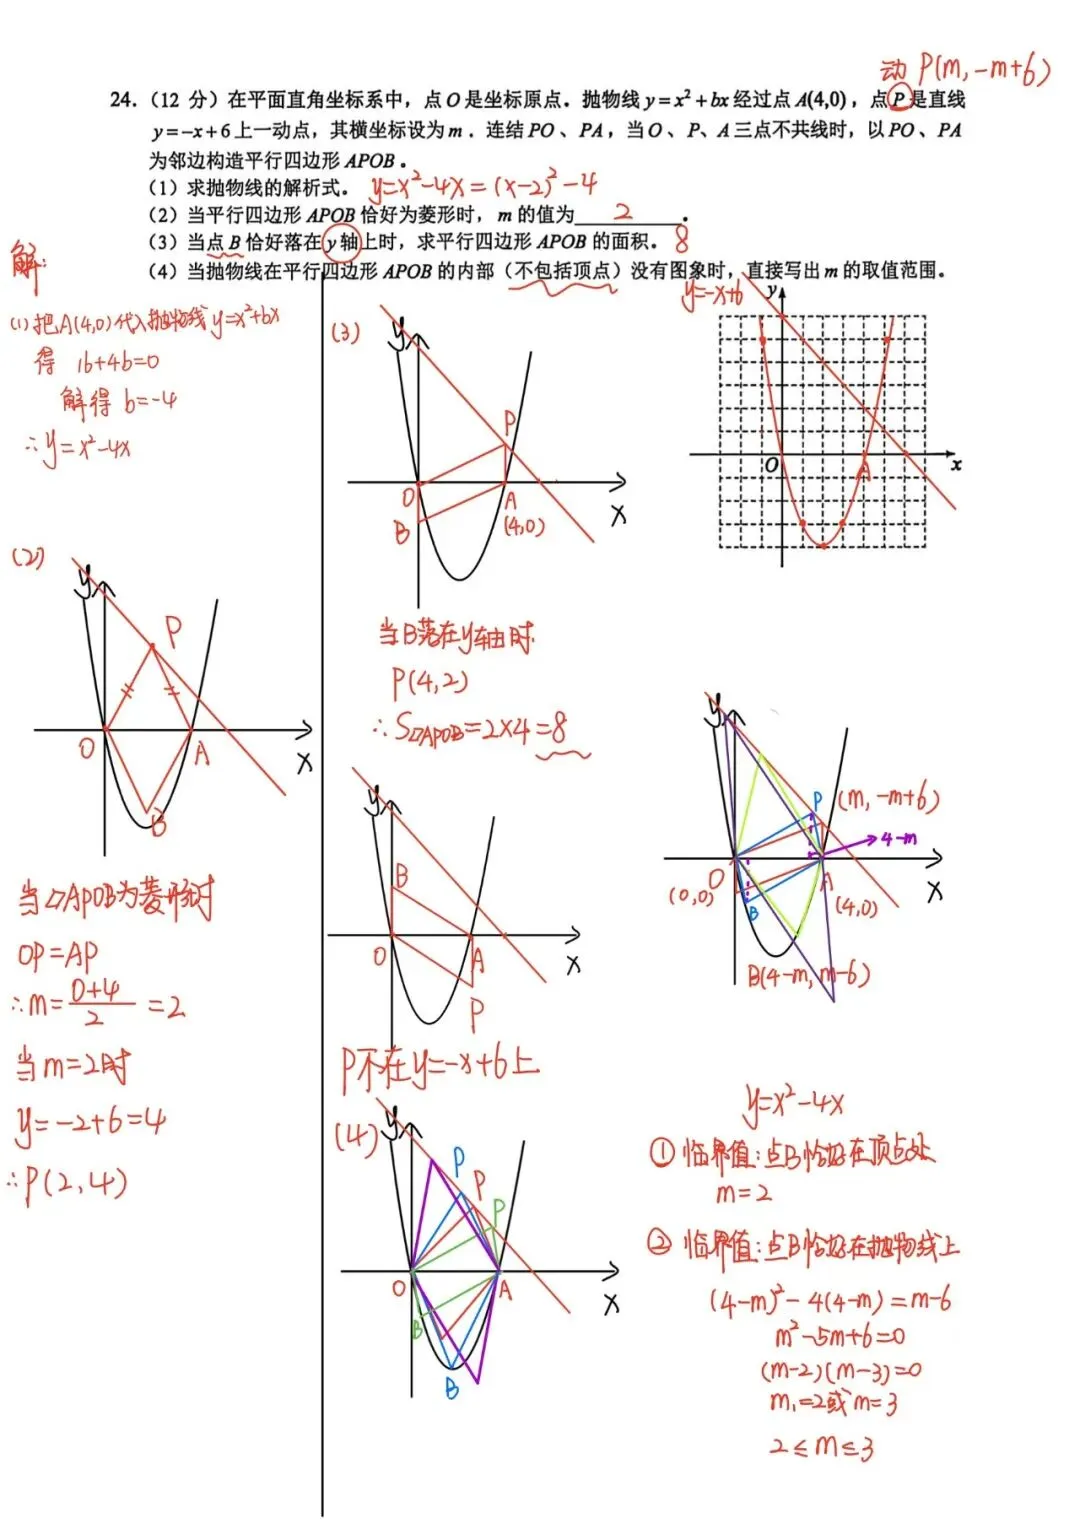 动 P(m, -m+6)
24.（12 分）在平面直角坐标系中，点 O 是坐标原点．抛物线 y=x²+bx 经过点 A(4,0)，点 P 是直线
y=-x+6 上一动点，其横坐标设为 m．连结 PO、PA，当 O、P、A 三点不共线时，以 PO、PA
为邻边构造平行四边形 APOB．
（1）求抛物线的解析式． y=x²-4x=(x-2)²-4
（2）当平行四边形 APOB 恰好为菱形时，m 的值为 2 ．
（3）当点 B 恰好落在 y 轴上时，求平行四边形 APOB 的面积． 8
（4）当抛物线在平行四边形 APOB 的内部（不包括顶点）没有图象时，直接写出 m 的取值范围．
解:
(1) 把A(4,0)代入抛物线 y=x²+bx
得 16+4b=0
解得 b=-4
∴y=x²-4x
(2)
y
P
O
A
x
B
当▱APOB为菱形时
OP=AP
∴m=\frac{0+4}{2}=2
当m=2时
y=-2+6=4
∴P(2,4)
(3)
y
P
O
A
x
B
(4,0)
当B落在y轴时.
P(4,2)
∴S▱APOB=2×4=8
y
B
O
A
x
P
P不在y=-x+6上
(4)
y
P
P
P
O
A
x
B
B
y=-x+6
y
O
A
x
y
P
(m, -m+6)
4-m
O
A
x
(0,0)
B
(4,0)
B(4-m, m-6)
y=x²-4x
① 临界值:点B恰好在顶点处
m=2
② 临界值:点B恰好在抛物线上
(4-m)²-4(4-m)=m-6
m²-5m+6=0
(m-2)(m-3)=0
m₁=2或m=3
2≤m≤3